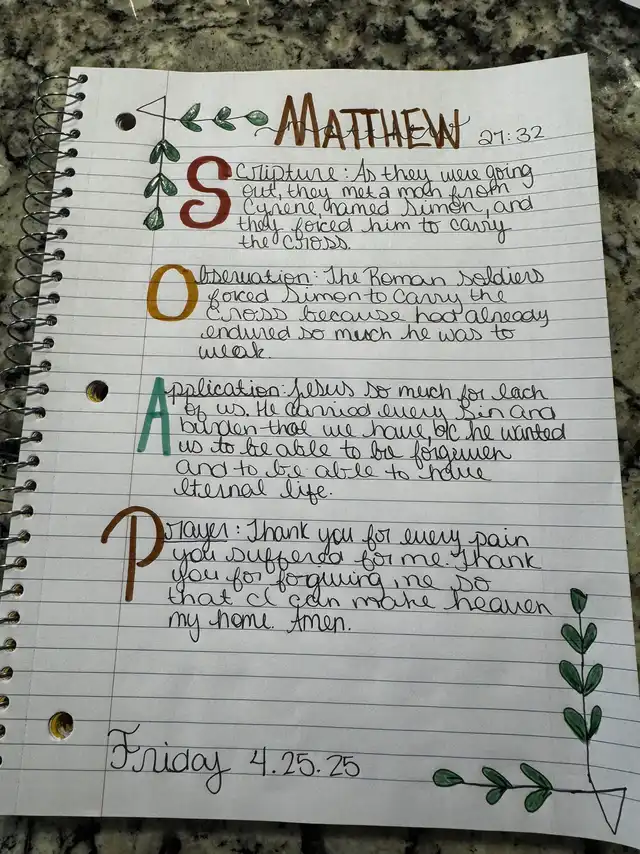 MATTHEW 27:32
Scripture: As they were going
out, they met a man from
Cyrene, named Simon, and
they forced him to carry
the cross.
Observation: The Roman soldiers
forced Simon to carry the
Cross because had already
endured so much he was to
weak.
Application: Jesus so much for each
of us. He carried every sin and
burden that we have, b/c he wanted
us to be able to be forgiven
and to be able to have
eternal life.
Prayer: Thank you for every pain
you suffered for me. Thank
you for forgiving me so
that I can make heaven
my home. Amen.
Friday 4.25.25